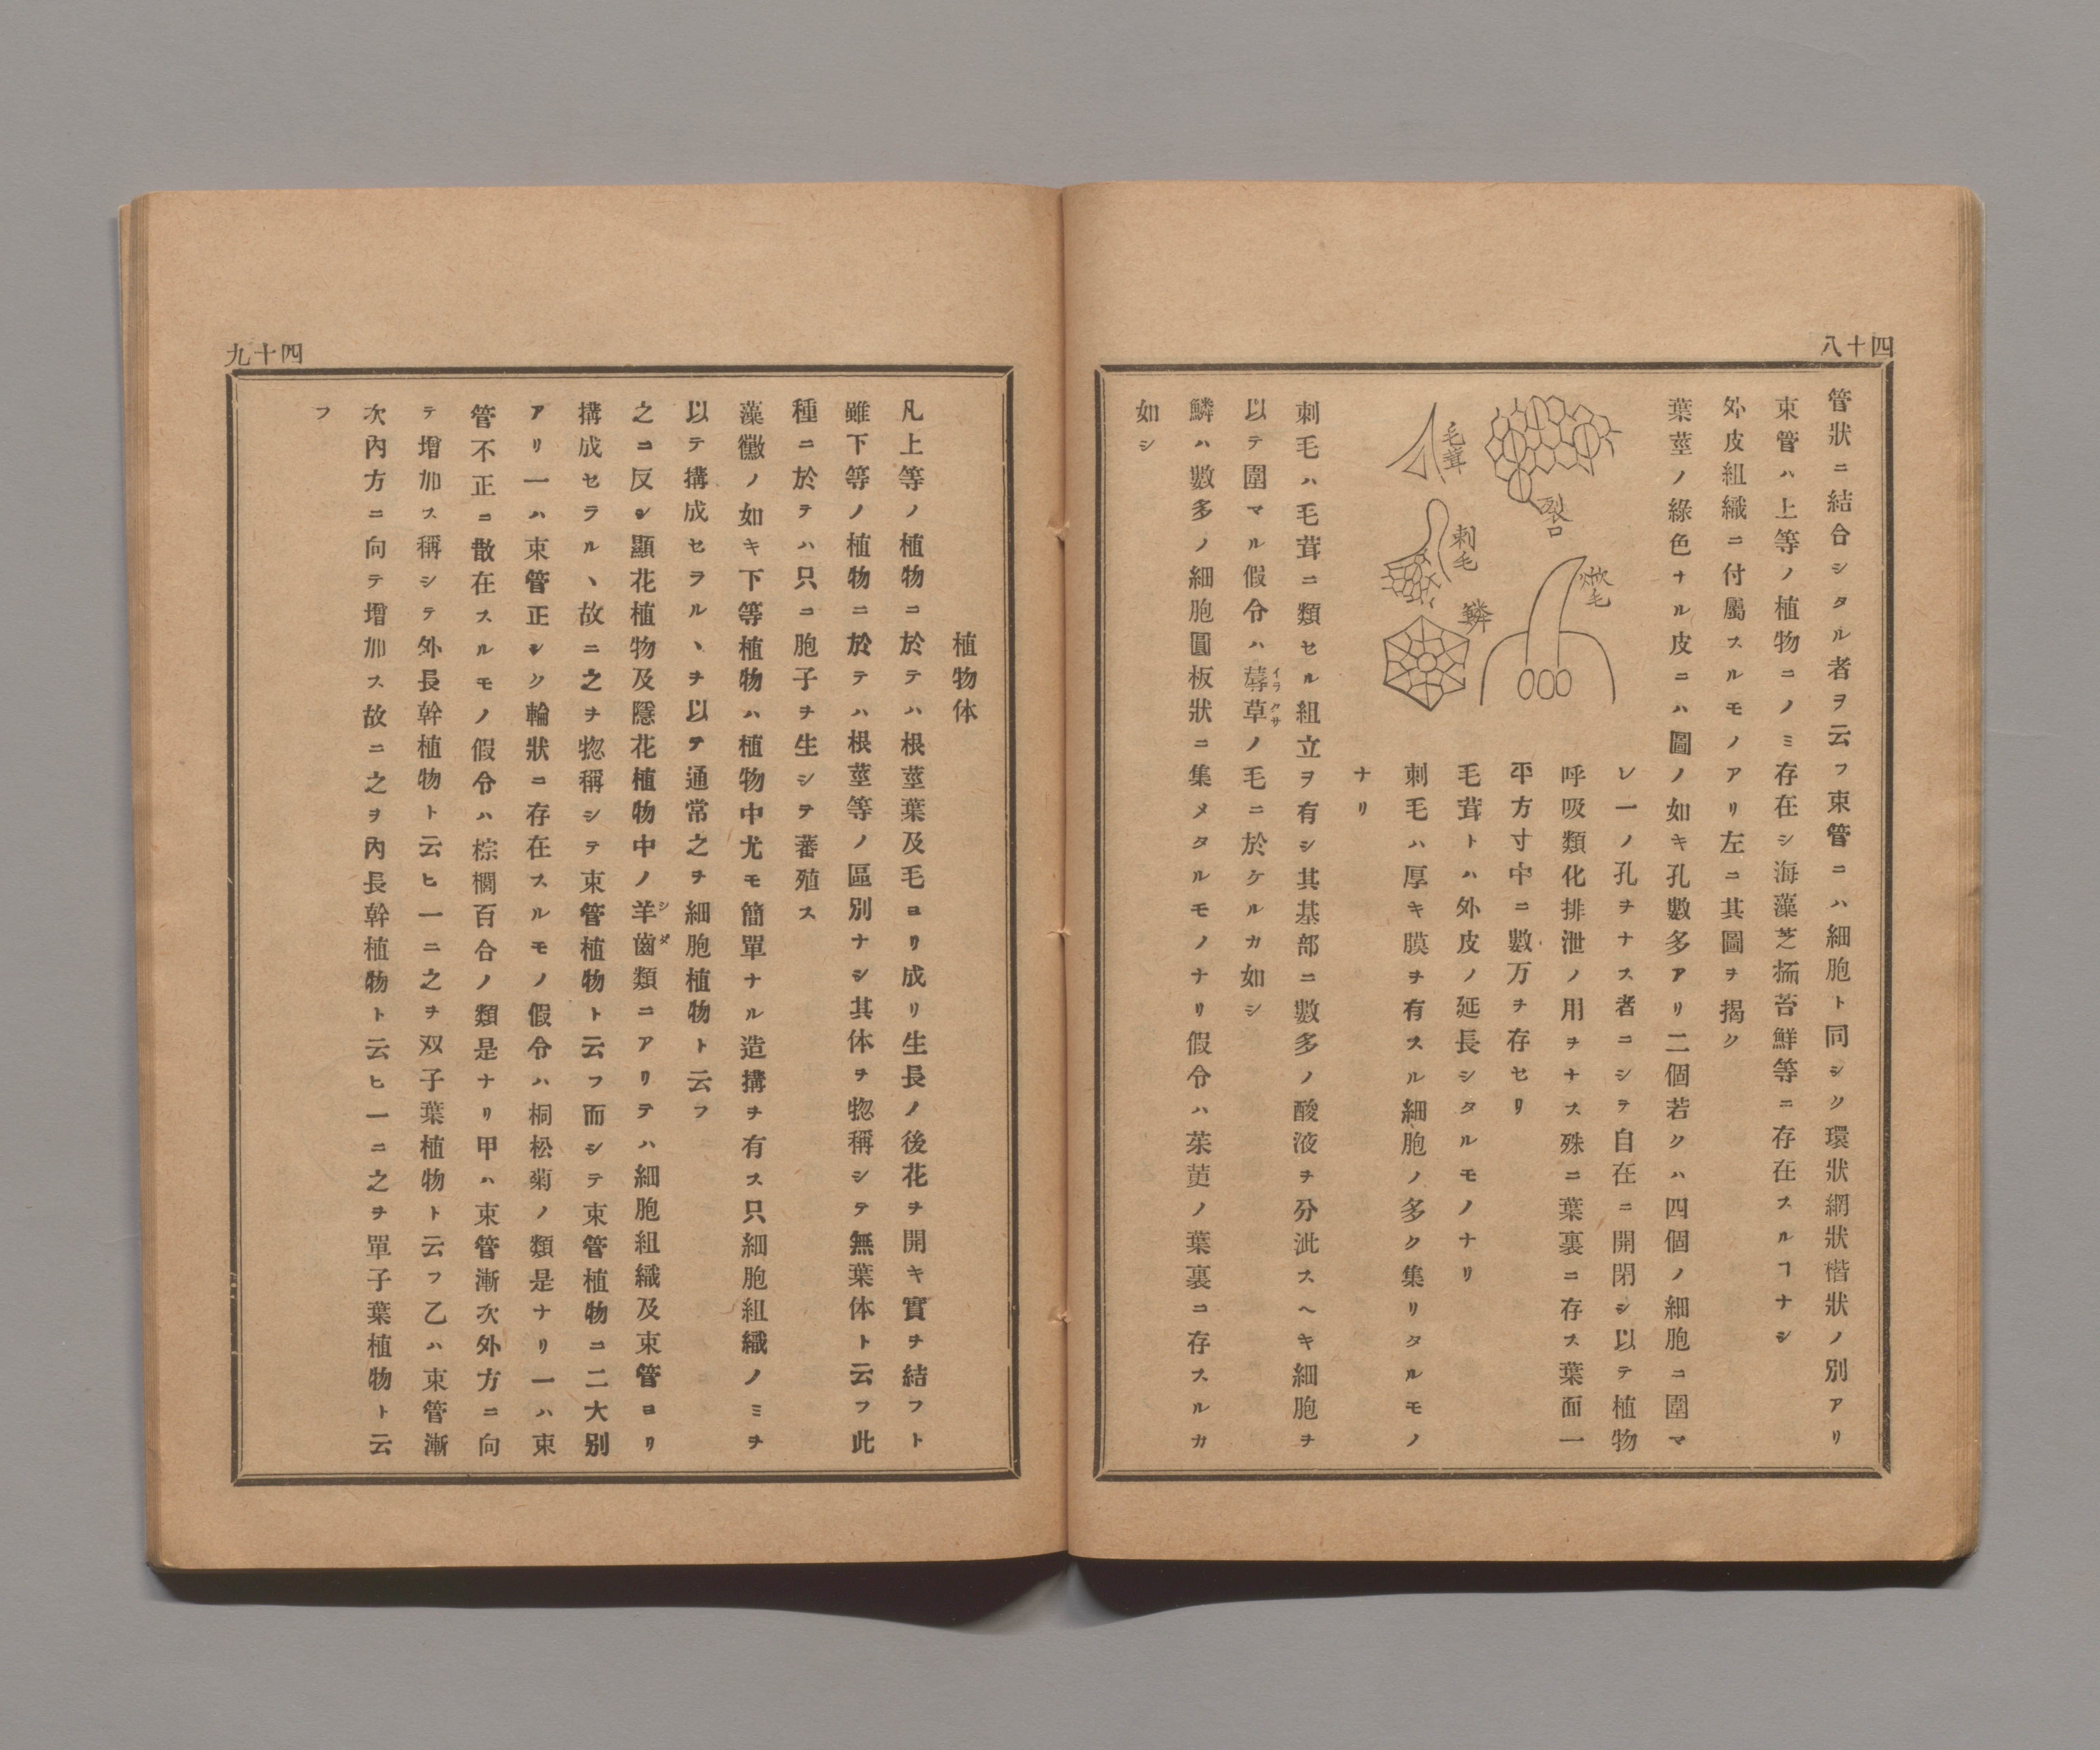 四十八
管狀ニ結合シタル者ヲ云フ束管ニハ細胞ト同シク環狀網狀楷狀ノ別アリ
束管ハ上等ノ植物ニノミ存在シ海藻芝栭苔鮮等ニ存在スルヿナシ
外皮組織ニ付屬スルモノアリ左ニ其圖ヲ揭ク
葉莖ノ綠色ナル皮ニハ圖ノ如キ孔數多アリ二個若クハ四個ノ細胞ニ圍マ
レ一ノ孔ヲナス者ニシテ自在ニ開閉シ以テ植物
呼吸類化排泄ノ用ヲナス殊ニ葉裏ニ存ス葉面一
平方寸中ニ數万ヲ存セリ
毛茸トハ外皮ノ延長シタルモノナリ
刺毛ハ厚キ膜ヲ有スル細胞ノ多ク集リタルモノ
ナリ
裂口
毛茸
刺毛
焮毛
鱗
刺毛ハ毛茸ニ類セル組立ヲ有シ其基部ニ數多ノ酸液ヲ分泚スヘキ細胞ヲ
以テ圍マル假令ハ蕁草ノ毛ニ於ケルカ如シ
イラクサ
鱗ハ數多ノ細胞圓板狀ニ集メタルモノナリ假令ハ茱萸ノ葉裏ニ存スルカ
如シ
四十九
植物体
凡上等ノ植物ニ於テハ根莖葉及毛ヨリ成リ生長ノ後花ヲ開キ實ヲ結フト
雖下等ノ植物ニ於テハ根莖等ノ區別ナシ其体ヲ惣稱シテ無葉体ト云フ此
種ニ於テハ只ニ胞子ヲ生シテ蕃殖ス
藻黴ノ如キ下等植物ハ植物中尤モ簡單ナル造搆ヲ有ス只細胞組織ノミヲ
以テ搆成セラル丶ヲ以テ通常之ヲ細胞植物ト云フ
之ニ反シ顯花植物及隱花植物中ノ羊齒類ニアリテハ細胞組織及束管ヨリ
シダ
搆成セラル丶故ニ之ヲ惣稱シテ束管植物ト云フ而シテ束管植物ニ二大別
アリ一ハ束管正シク輪狀ニ存在スルモノ假令ハ桐松菊ノ類是ナリ一ハ束
管不正ニ散在スルモノ假令ハ棕櫚百合ノ類是ナリ甲ハ束管漸次外方ニ向
テ增加ス稱シテ外長幹植物ト云ヒ一ニ之ヲ双子葉植物ト云フ乙ハ束管漸
次內方ニ向テ增加ス故ニ之ヲ內長幹植物ト云ヒ一ニ之ヲ單子葉植物ト云
フ